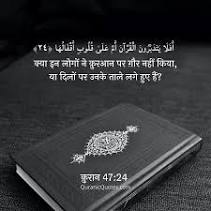 أَفَلَا يَتَدَبَّرُونَ الْقُرْآنَ أَمْ عَلَىٰ قُلُوبٍ أَقْفَالُهَا ﴿٢٤﴾
क्या इन लोगों ने क़ुरआन पर ग़ौर नहीं किया,
या दिलों पर उनके ताले लगे हुए हैं?
क़ुरान 47:24
QuranicQuotes.com